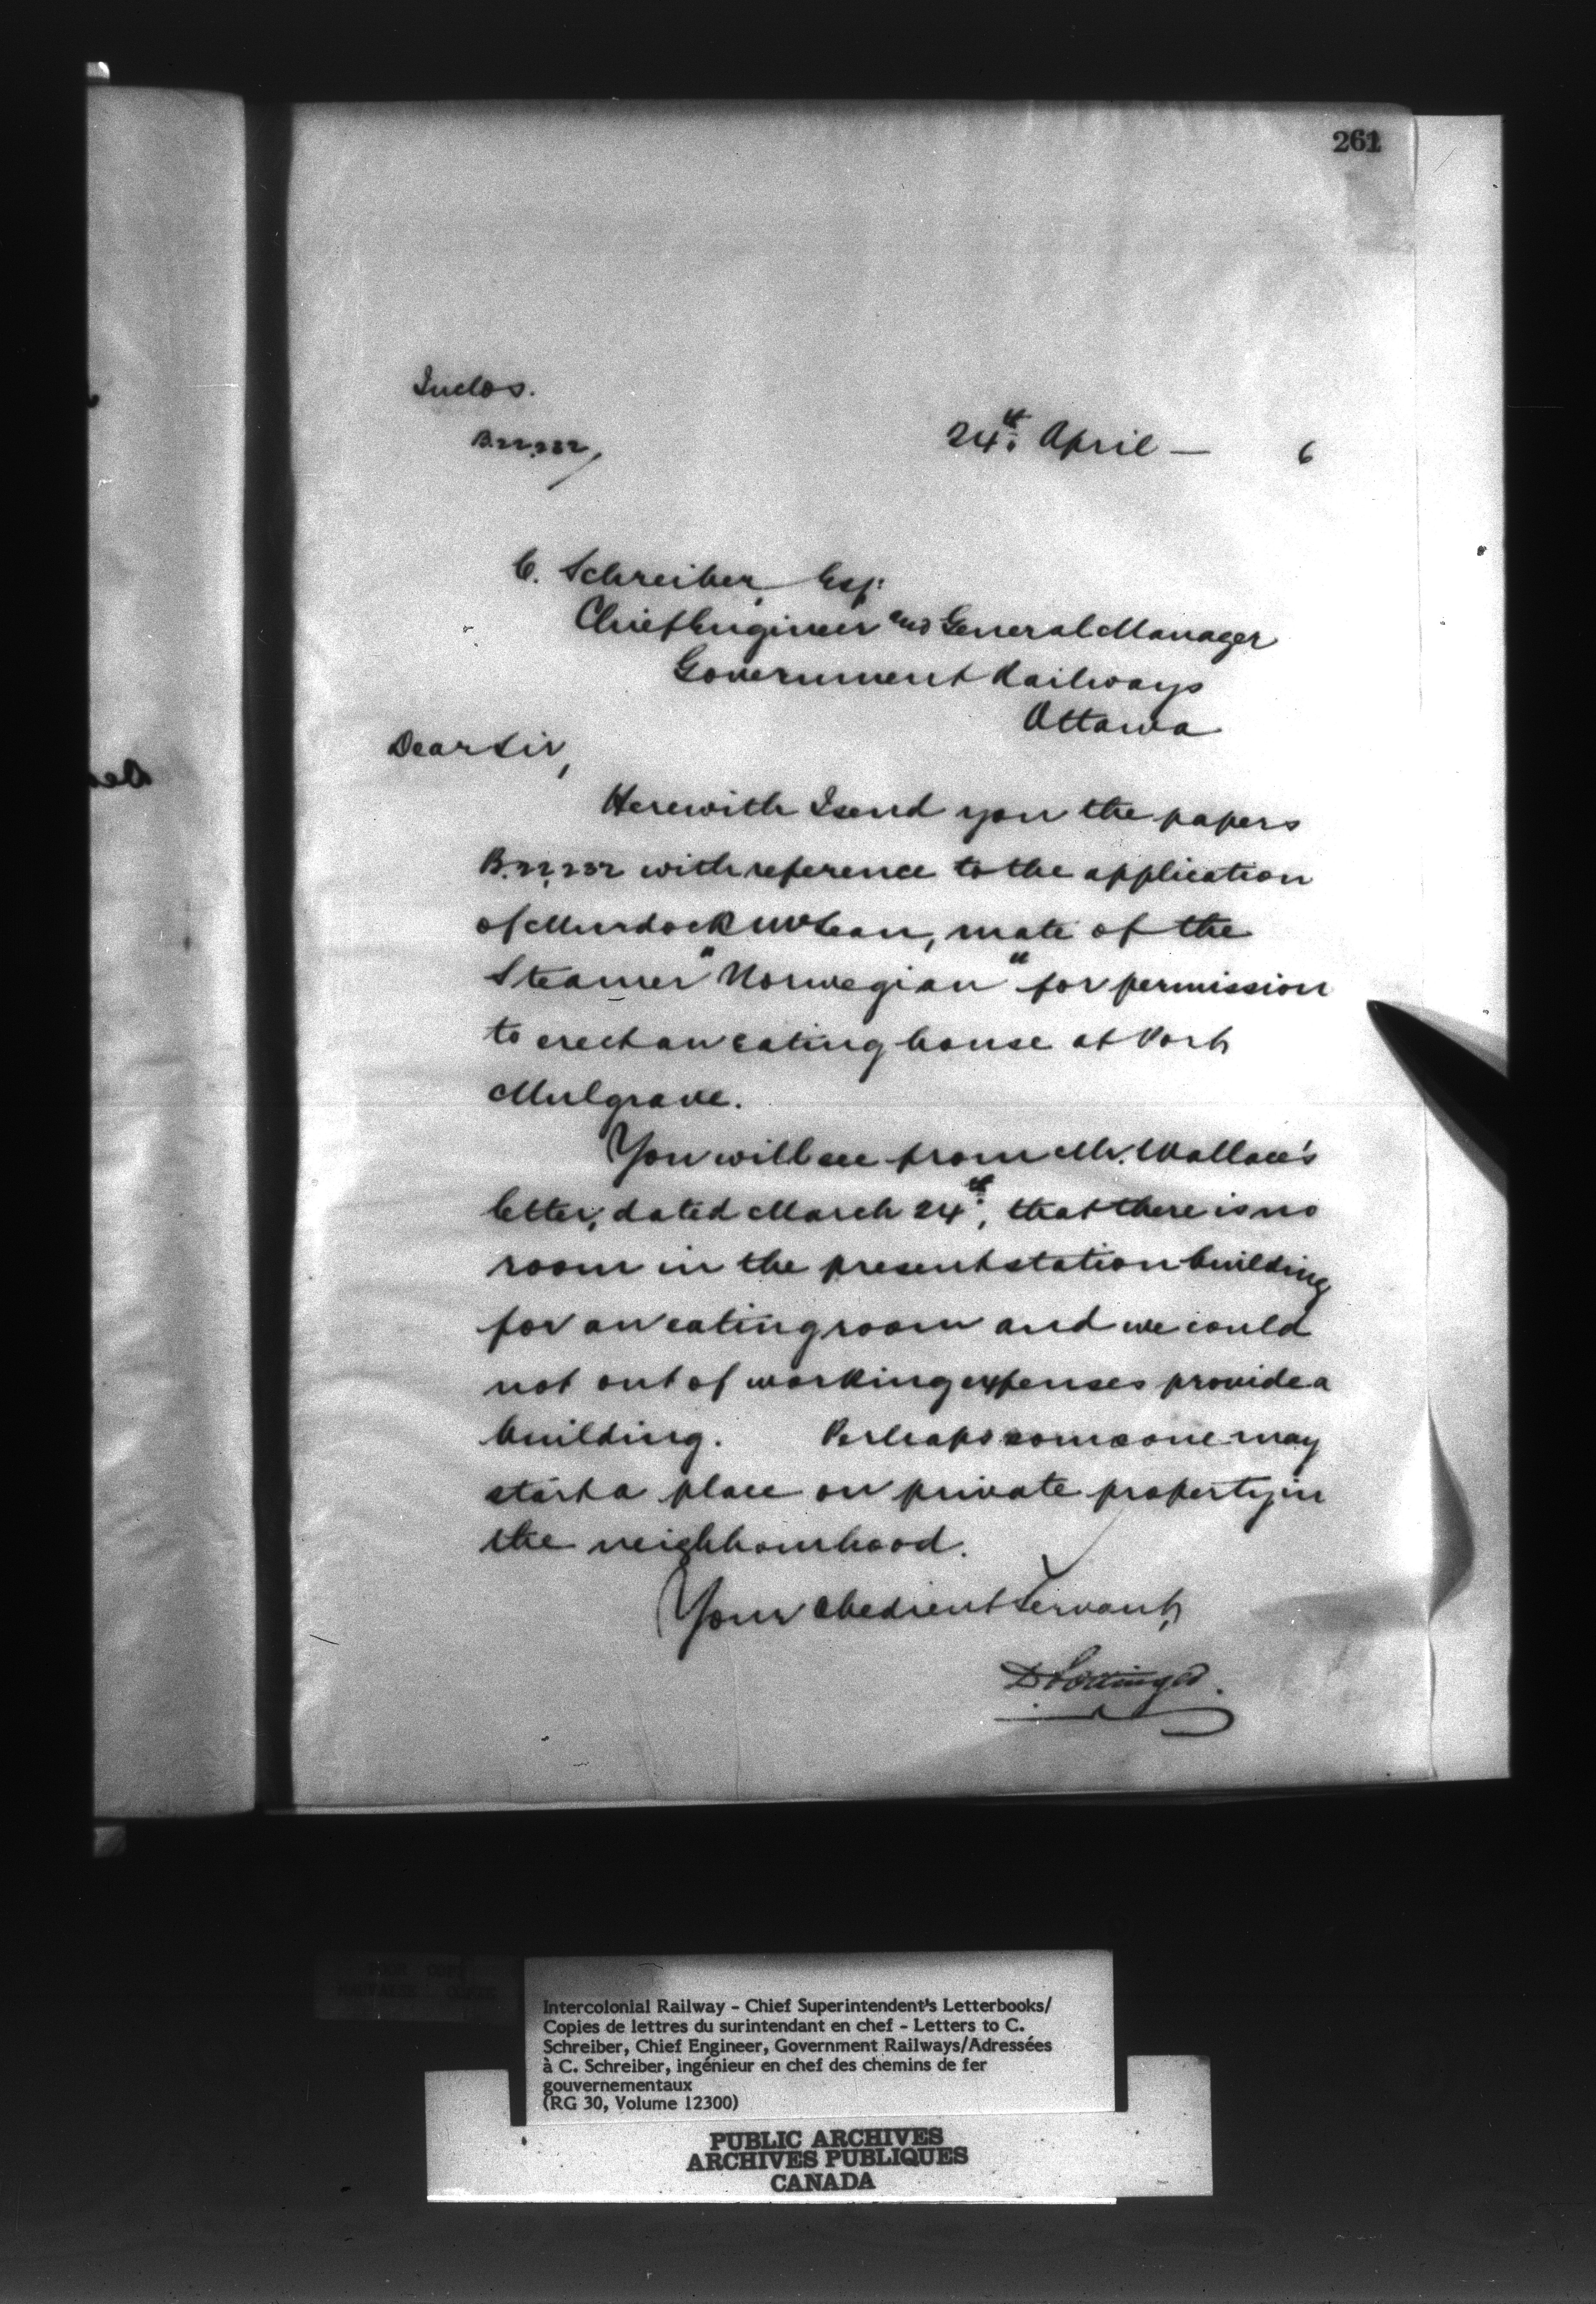 261
Inclos.
B.22,232/
24th April — 6
C. Schreiber, Esq:
Chief Engineer and General Manager
Government Railways
Ottawa
Dear Sir,
Herewith I send you the papers
B.22,232 with reference to the application
of Murdock McLean, mate of the
Steamer "Norwegian" for permission
to erect an eating house at Port
Mulgrave.
You will see from Mr. Wallace's
letter, dated March 24th, that there is no
room in the present station building
for an eating room and we could
not out of working expenses provide a
building. Perhaps some one may
start a place on private property in
the neighbourhood.
Your obedient Servant,
D Pottinger.
Intercolonial Railway - Chief Superintendent's Letterbooks/
Copies de lettres du surintendant en chef - Letters to C.
Schreiber, Chief Engineer, Government Railways/Adressées
à C. Schreiber, ingénieur en chef des chemins de fer
gouvernementaux
(RG 30, Volume 12300)
PUBLIC ARCHIVES
ARCHIVES PUBLIQUES
CANADA